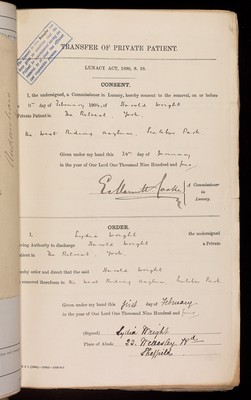 TRANSFER OF PRIVATE PATIENT.
LUNACY ACT, 1890, S. 59.
CONSENT.
I, the undersigned, a Commissioner in Lunacy, hereby consent to the removal, on or before
day of February 1904, of Harold Wright
Private Patient in The Retreat, York,
The West Riding Asylum, Scalebor Park
Given under my hand this 30th day of January
in the year of Our Lord One Thousand Nine Hundred and four.
A Commissioner
in
Lunacy.
ORDER.
I, Lydia Wright the undersigned
having Authority to discharge Harold Wright a Private
Patient in The Retreat, York
hereby order and direct that the said Harold Wright
be removed therefrom to The West Riding Asylum Scalebor Park
Given under my hand this first day of February
in the year of Our Lord One Thousand Nine Hundred and four
(Signed) Lydia Wright
Place of Abode 22. Wellesley Rd
Sheffield